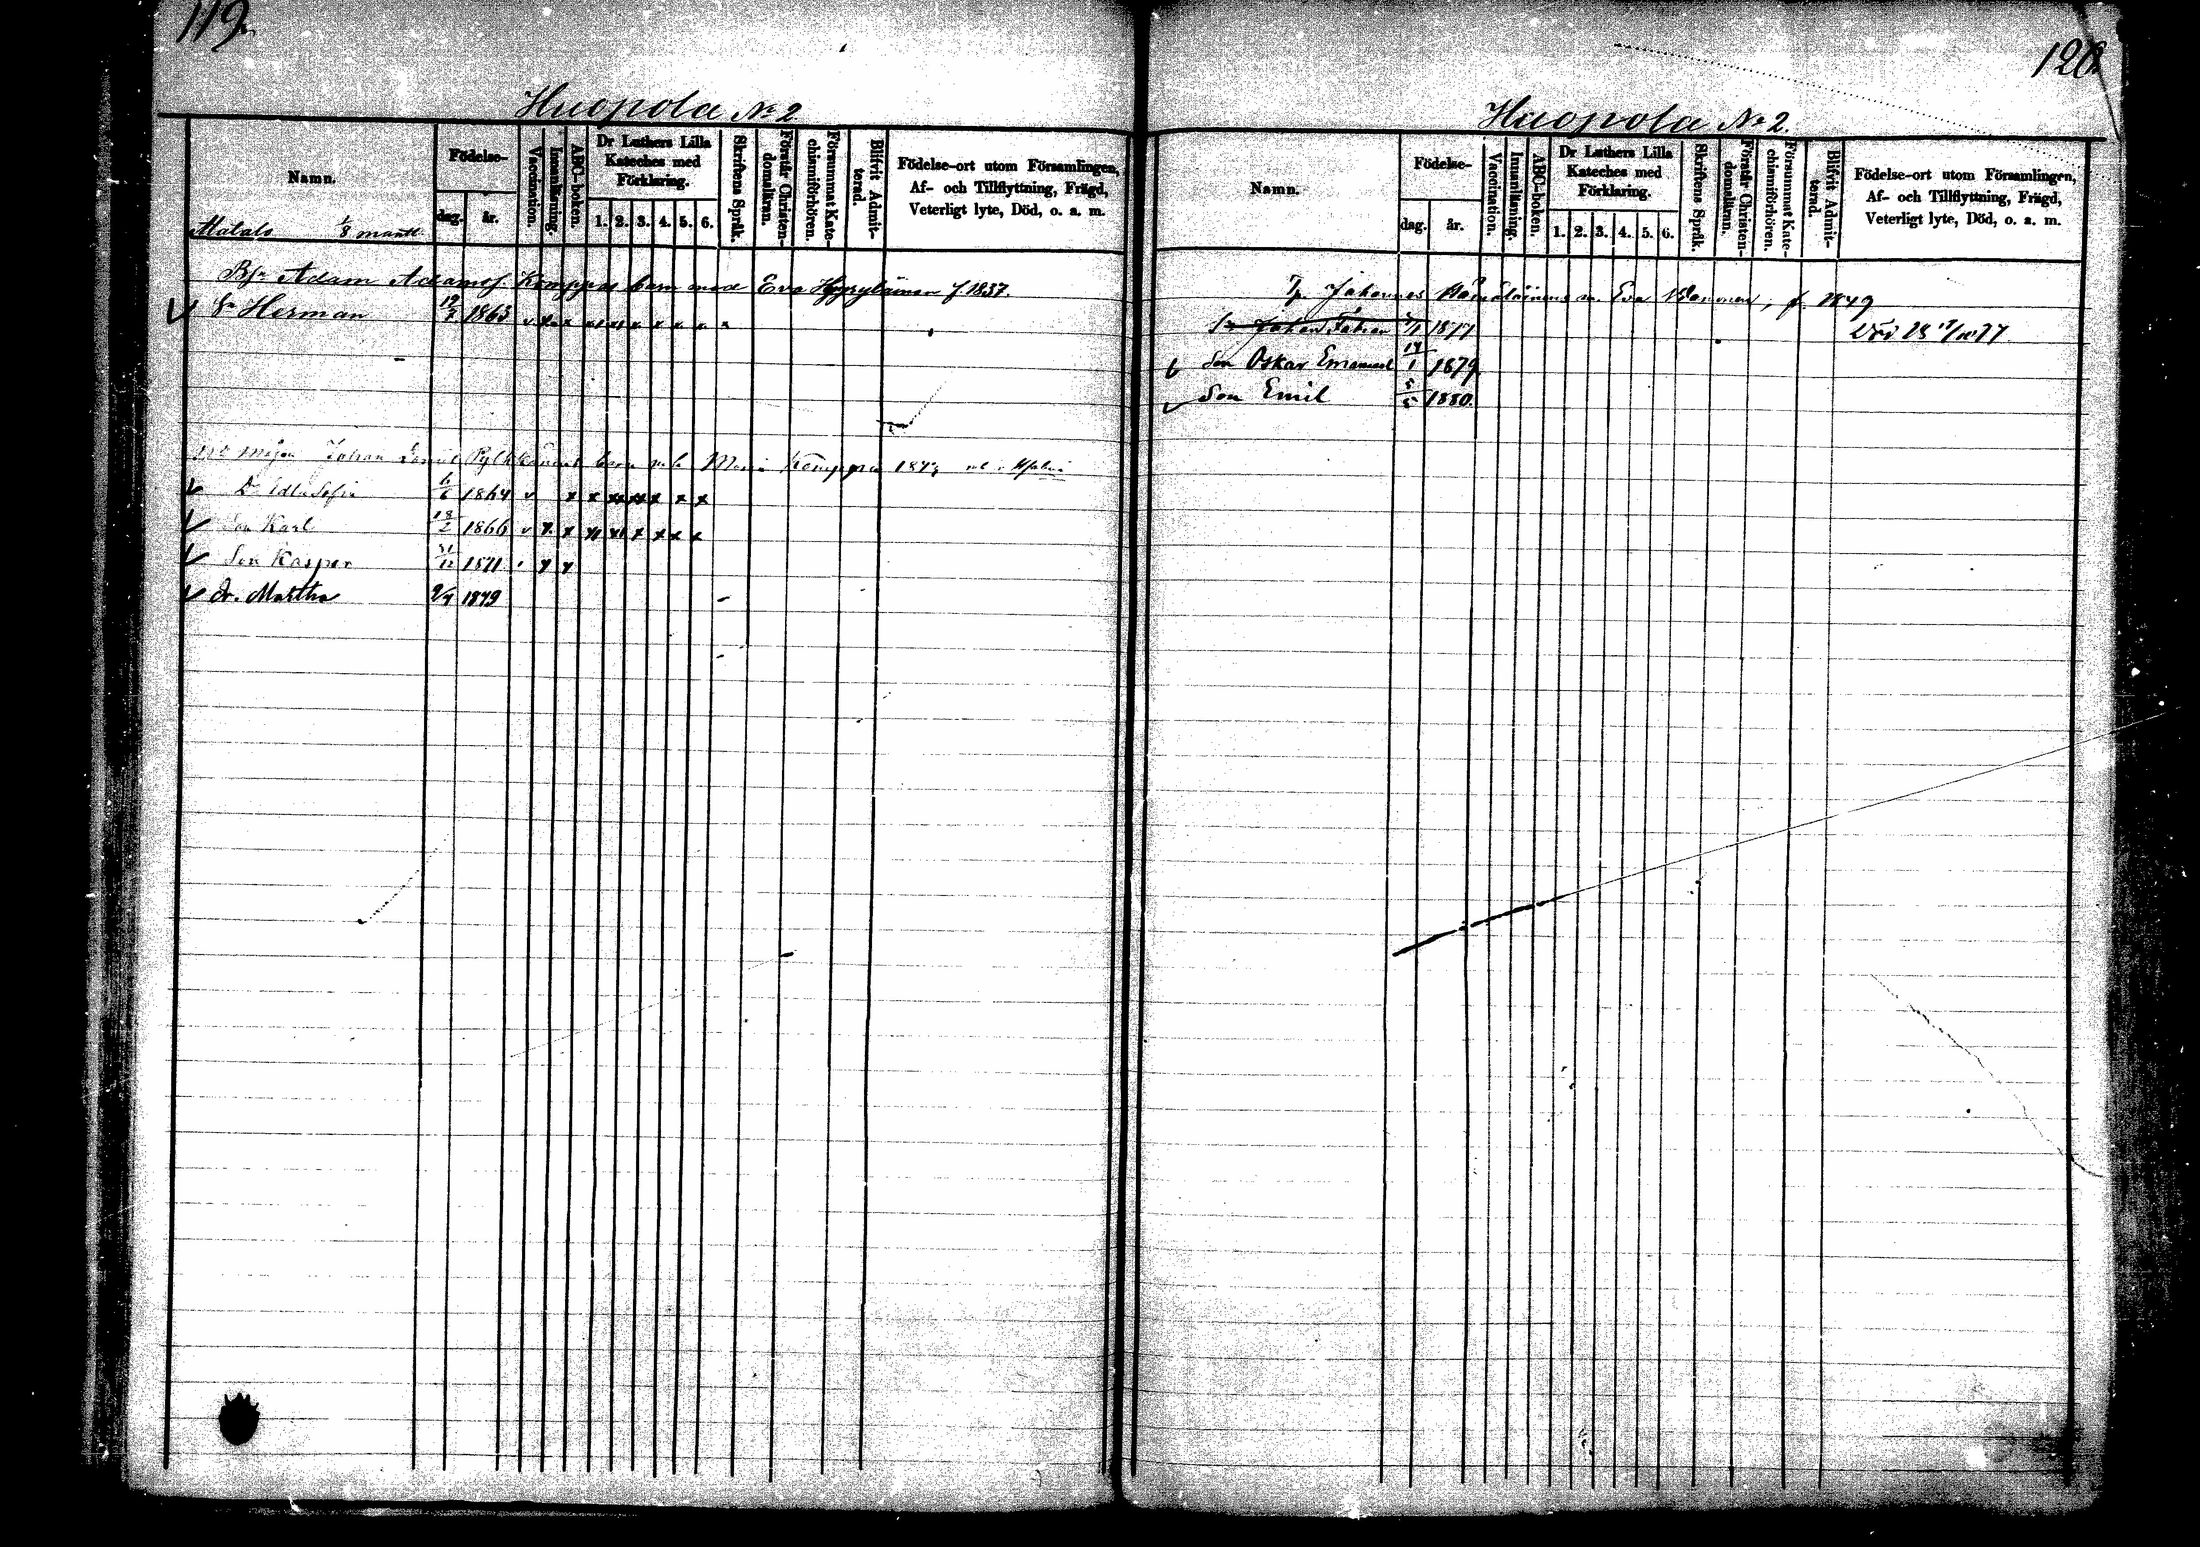 119.
Huopola No 2
Namn.
Födelse-
dag.
år.
Vaccination.
Innanläsning.
ABC-boken.
Dr Luthers Lilla
Kateches med
Förklaring.
1. 2. 3. 4. 5. 6.
Skriftens Språk.
Förstår Christen-
domsläran.
Försummat Kate-
chismiförhören.
Blifvit Admit-
terad.
Födelse-ort utom Församlingen,
Af- och Tillflyttning, Frägd,
Veterligt lyte, Död, o. a. m.
1/8 mantl
Adam Adamsf. Kemppas barn med Eva f 1837.
Sn Herman 19/7 1863
Johan barn Kemppa
D. Edla Sofia 6/6 1864
Son Karl 18/2 1866
Son Kasper 1871
Dr. Martha 1879
120.
Huopola No 2.
Namn.
Födelse-
dag.
år.
Vaccination.
Innanläsning.
ABC-boken.
Dr Luthers Lilla
Kateches med
Förklaring.
1. 2. 3. 4. 5. 6.
Skriftens Språk.
Förstår Christen-
domsläran.
Försummat Kate-
chismiförhören.
Blifvit Admit-
terad.
Födelse-ort utom Församlingen,
Af- och Tillflyttning, Frägd,
Veterligt lyte, Död, o. a. m.
Johannes m. Eva f. 1849
Johan Fabian 1877
Son Oskar Emanuel 1879
Son Emil 1880.